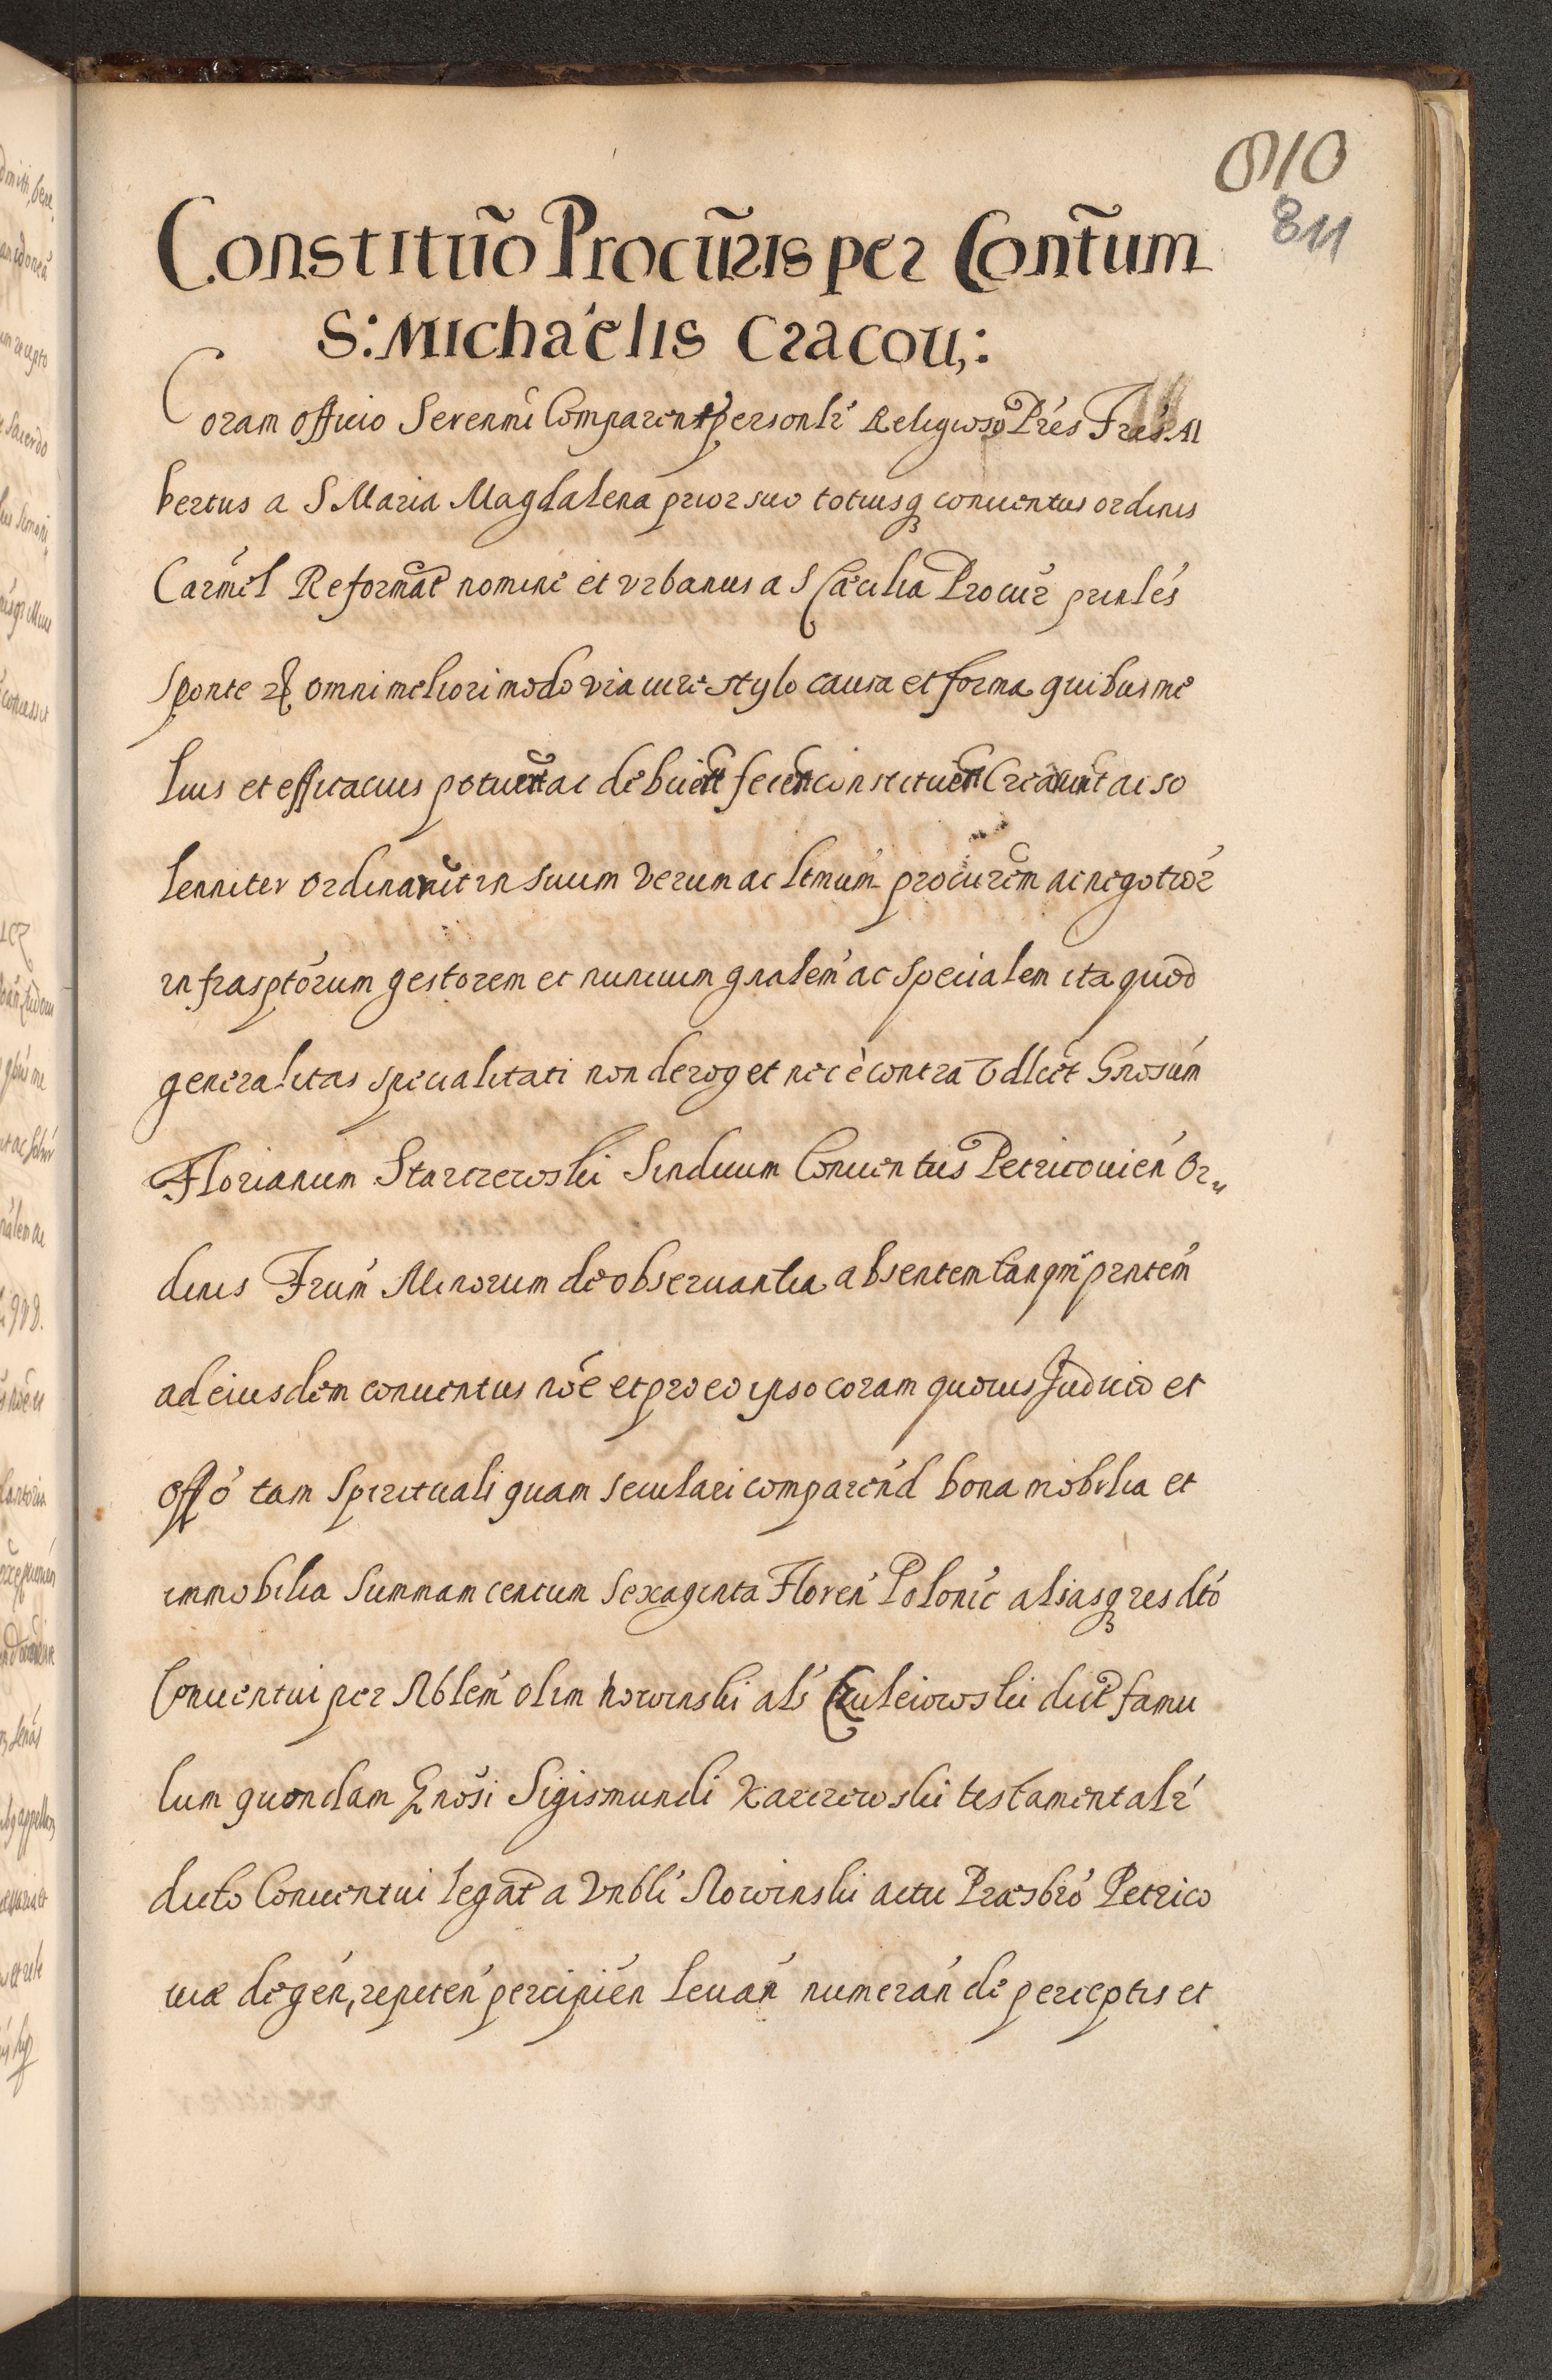 810
811
Constitũo Procũris per Contũm
S: Michaelis Cracou,:
Coram officio Serenmi Comparent personlr Religiosi Pres Fres Al
bertus a S Maria Magdalena prior suo totiusq conuentus ordinis
Carmel Reformat nomine et vrbanus a S Cæcilia Procur prnles
sponte et omni meliori modo via iure stylo causa et forma quibus me
lius et efficacius potuert ac debuert fecert constituert Crearunt ac so
lenniter ordinarut in suum verum ac ltmum procurem ac negotior
infrasptorum gestorem et nuncium gnalem ac specialem ita quod
generalitas specialitati non deroget nec è contra vdlcet Gnosum
Florianum Starczewski Sindicum Conuentus Petricouien Or
dinis Frum Minorum de obseruantia absentem tanqm prntem
ad eiusdem conuentus noe et pro eo ipso coram quouis Judicio et
offo tam spirituali quam seculari comparend bona mobilia et
immobilia summam centum sexaginta Floren Polonic aliasq res dto
Conuentui per Nblem olim Nowinski als Culeiowski dict famu
lum quondam Gnosi Sigismundi Karczewski testamentalr
dicto Conuentui legat a Vnbli Nowinski actu Præsbro Petrico
uiæ degen, repeten percipien leuan numeran de perceptis et